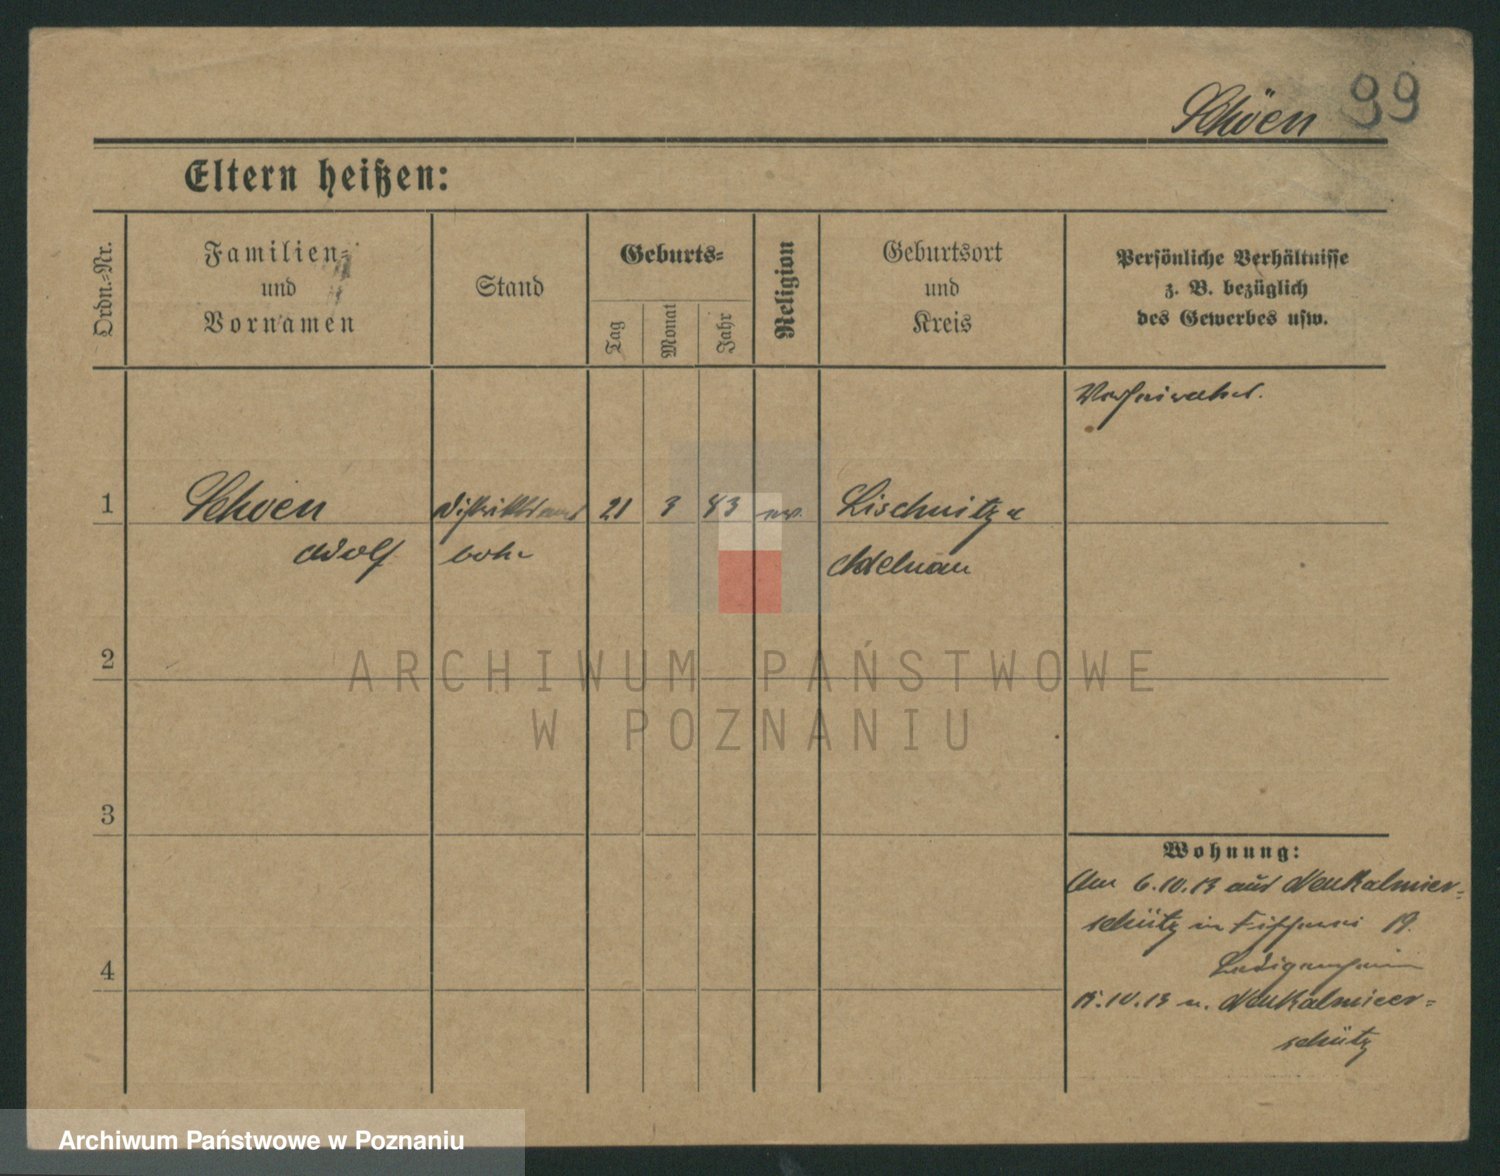 Schöen 99
Eltern heißen:
Ordn.-Nr.
Familien-
und
Vornamen
Stand
Geburts-
Tag
Monat
Jahr
Religion
Geburtsort
und
Kreis
Persönliche Verhältnisse
z. B. bezüglich
des Gewerbes usw.
Verheirathet.
1
Schoen
Adolf
Distriktsamts
bote
21 3 83
ev.
Lischnitz
Adelnau
2
3
4
ARCHIWUM PAŃSTWOWE
W POZNANIU
Wohnung:
Am 6.10.13 aus Neukalmier-
schütz in 19.
15.10.13 n. Neukalmier-
schütz
Archiwum Państwowe w Poznaniu